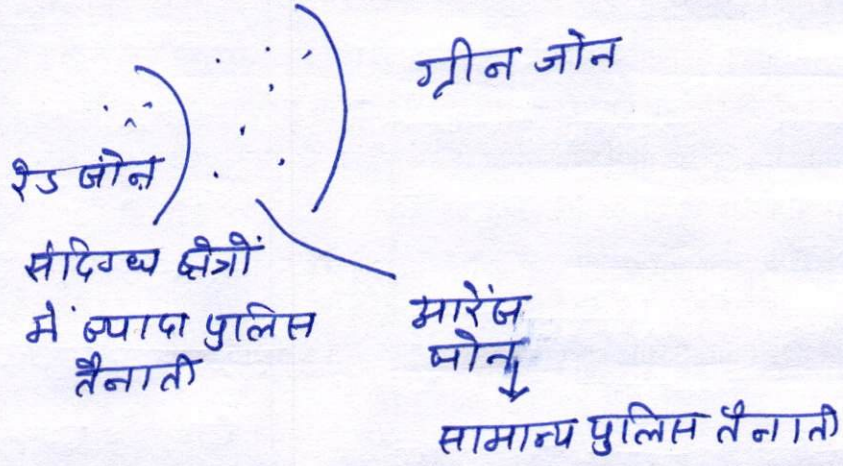 ग्रीन जोन
रेड जोन
संदिग्ध क्षेत्रों
में ज्यादा पुलिस
तैनाती
ओरेंज
जोन
सामान्य पुलिस तैनाती